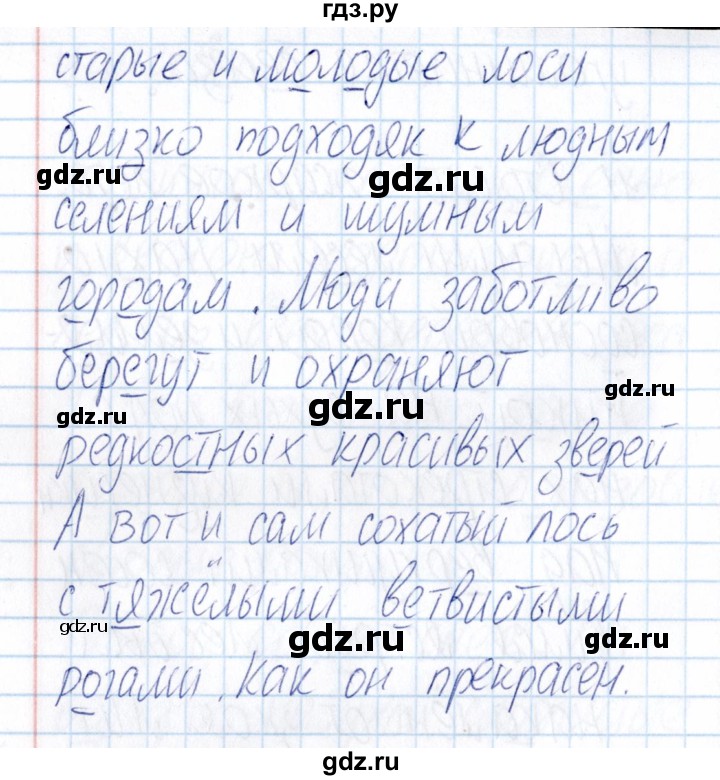 гдз.ру
старые и молодые лоси
близко подходяк к людным
gdz.ru gdz.ru
селениям и шумным
gdz.ru
городам. Люди заботливо
берегут и охраняют
gdz.ru gdz.ru gdz.ru
редкостных красивых зверей
А вот и сам сохатый лось
с тяжёлыми ветвистыми
gdz.ru gdz.ru gdz.ru
рогами. Как он прекрасен.
gdz.ru